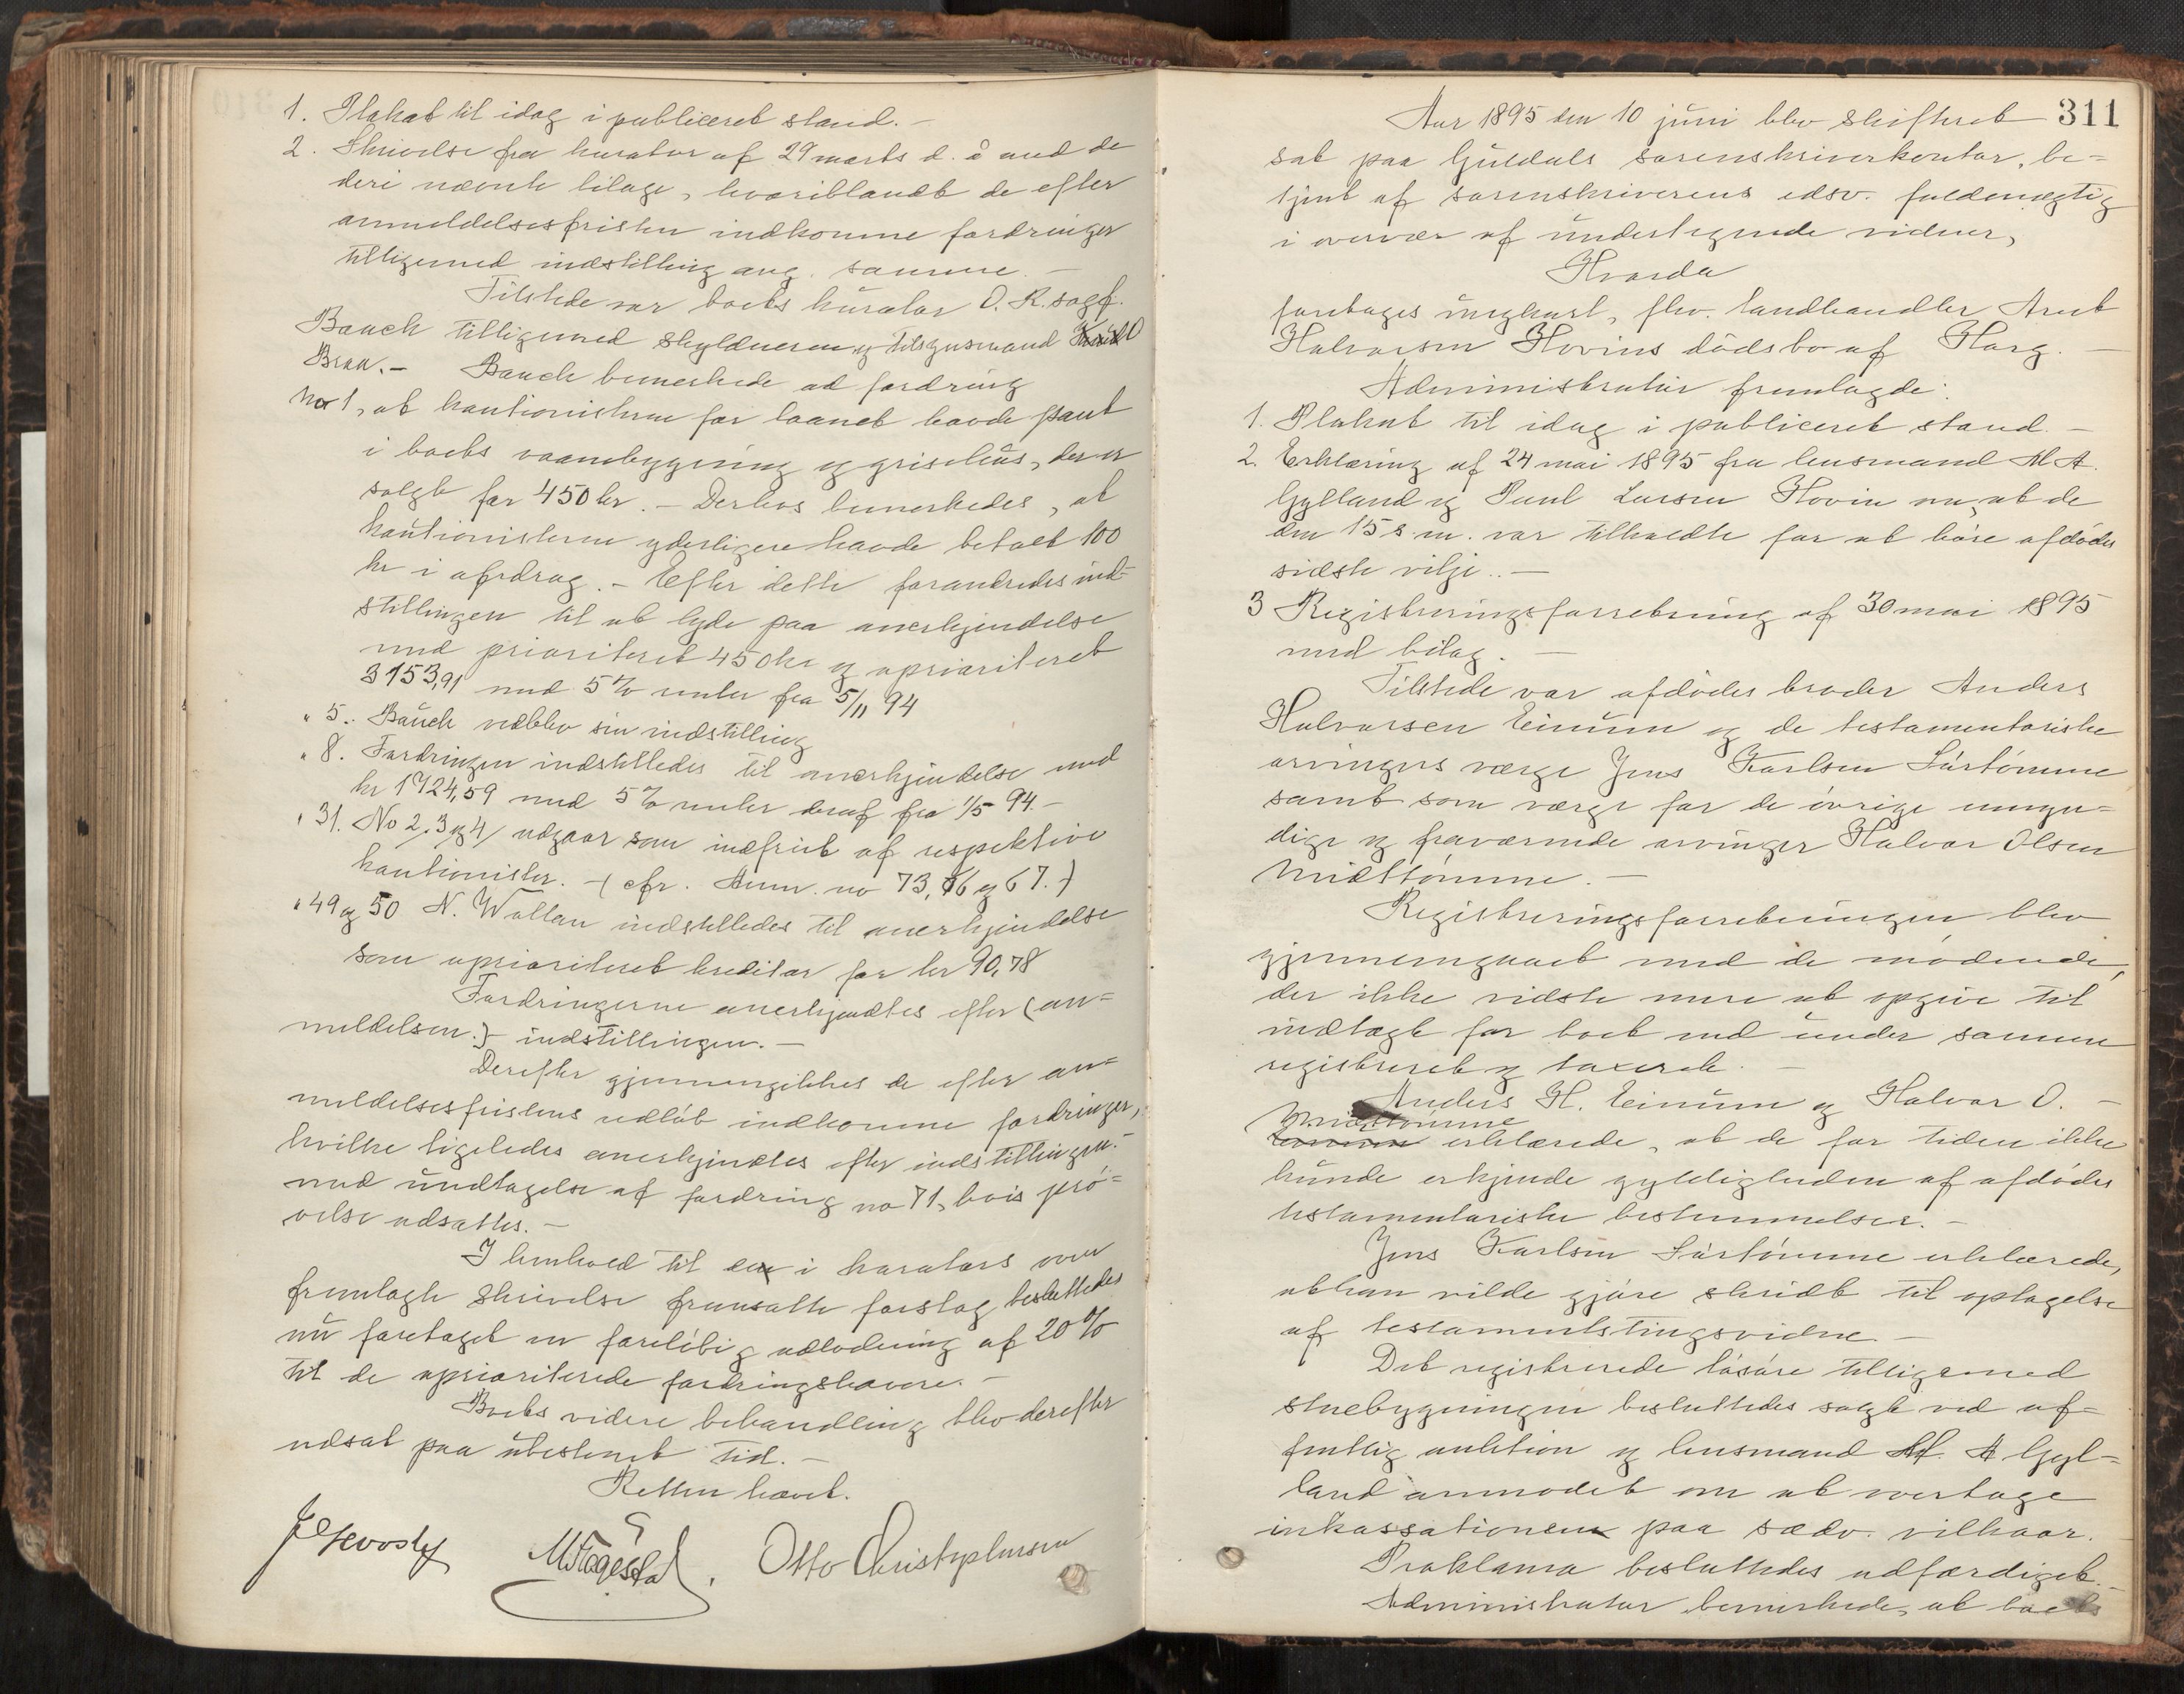 1. Plakat til idag i publiceret stand. –
2. Skrivelse fra kurator af 29 marts d. å med de
deri nævnte bilage, hvoriblandt de efter
anmeldelsesfristen indkomne fordringer
tilligemed indstilling ang. samme. –
Tilstede var boets kurator O. R. sagf.
Bauck tilligemed skyldneren og tilsynsmand O
Braa. – Bauck bemerkede ad fordring
No 1, at kautionisterne for laanet havde pant
i boets vaanebygning og grisehus, der er
solgt for 450 kr. – Derhos bemerkedes, at
kautionisterne yderligere havde betalt 100
kr i afdrag. – Efter dette forandredes ind-
stillingen til at lyde paa anerkjendelse
med prioriteret 450 kr og uprioriteret
3153,91 med 5% renter fra 5/11 94
" 5. Bauck vedblev sin indstilling
" 8. Fordringen indstilledes til anerkjendelse med
kr 1724,59 med 5% renter deraf fra 1/5 94. –
" 31. No 2, 3 og 4 udgaar som indfriet af respektive
kautionister. – (cfr. Anm. no 73, 76 og 67.)
" 49 og 50 N. Wollan indstilledes til anerkjendelse
som uprioriteret kreditor for kr 90,78
Fordringerne anerkjendtes efter (an=
meldelsen.) indstillingen. –
Derefter gjennemgikkes de efter an=
meldelsesfristens udløb indkomne fordringer,
hvilke ligeledes anerkjendtes efter indstillingen. –
med undtagelse af fordring no 71, hvis prø=
velse udsattes. –
I henhold til et i kurators oven
fremlagte skrivelse fremsatte forslag besluttedes
nu foretaget en foreløbig udlodning af 20%
til de uprioriterede fordringshavere. –
Boets videre behandling blev derefter
udsat paa ubestemt tid. –
Retten hævet.
Otto Christophersen
311
Aar 1895 den 10 juni blev skifteret
sat paa Guldals sorenskriverkontor, be=
tjent af sorenskriverens edsv. fuldmægtig
i overvær af undertegnede vidner,
Hvorda
foretages ungkarl, fhv. landhandler Arnt
Halvorsen Hovins dødsbo af Horg. –
Administrator fremlagde:
1. Plakat til idag i publiceret stand. –
2. Erklæring af 24 mai 1895 fra lensmand M. A.
Gylland og Paul Larsen Hovin om, at de
den 15 s. m. var tilkaldte for at høre afdødes
sidste vilje. –
3 Registreringsforretning af 30 mai 1895
med bilag. –
Tilstede var afdødes broder Anders
Halvorsen Einum og de testamentariske
arvingers værge Jens Karlsen Sørtømme
samt som værge for de øvrige umyn=
dige og fraværende arvinger Halvor Olsen
Midttømme. –
Registreringsforretningen blev
gjennemgaaet med de mødende,
der ikke vidste mere at opgive til
indtægt for boet end under samme
registreret og taxeret. –
Anders H. Einum og Halvor O. –
Midttømme
erklærede, at de for tiden ikke
kunde erkjende gyldigheden af afdødes
testamentariske bestemmelser. –
Jens Karlsen Sørtømme erklærede,
at han vilde gjøre skridt til optagelse
af testamentstingsvidne. –
Det registrerede løsøre tilligemed
stuebygningen besluttedes solgt ved of=
fentlig auktion og lensmand M. A Gyl=
land anmodet om at overtage
inkassationen paa sædv. vilkaar. –
Proklama besluttedes udfærdiget. –
Administrator bemerkede, at boets